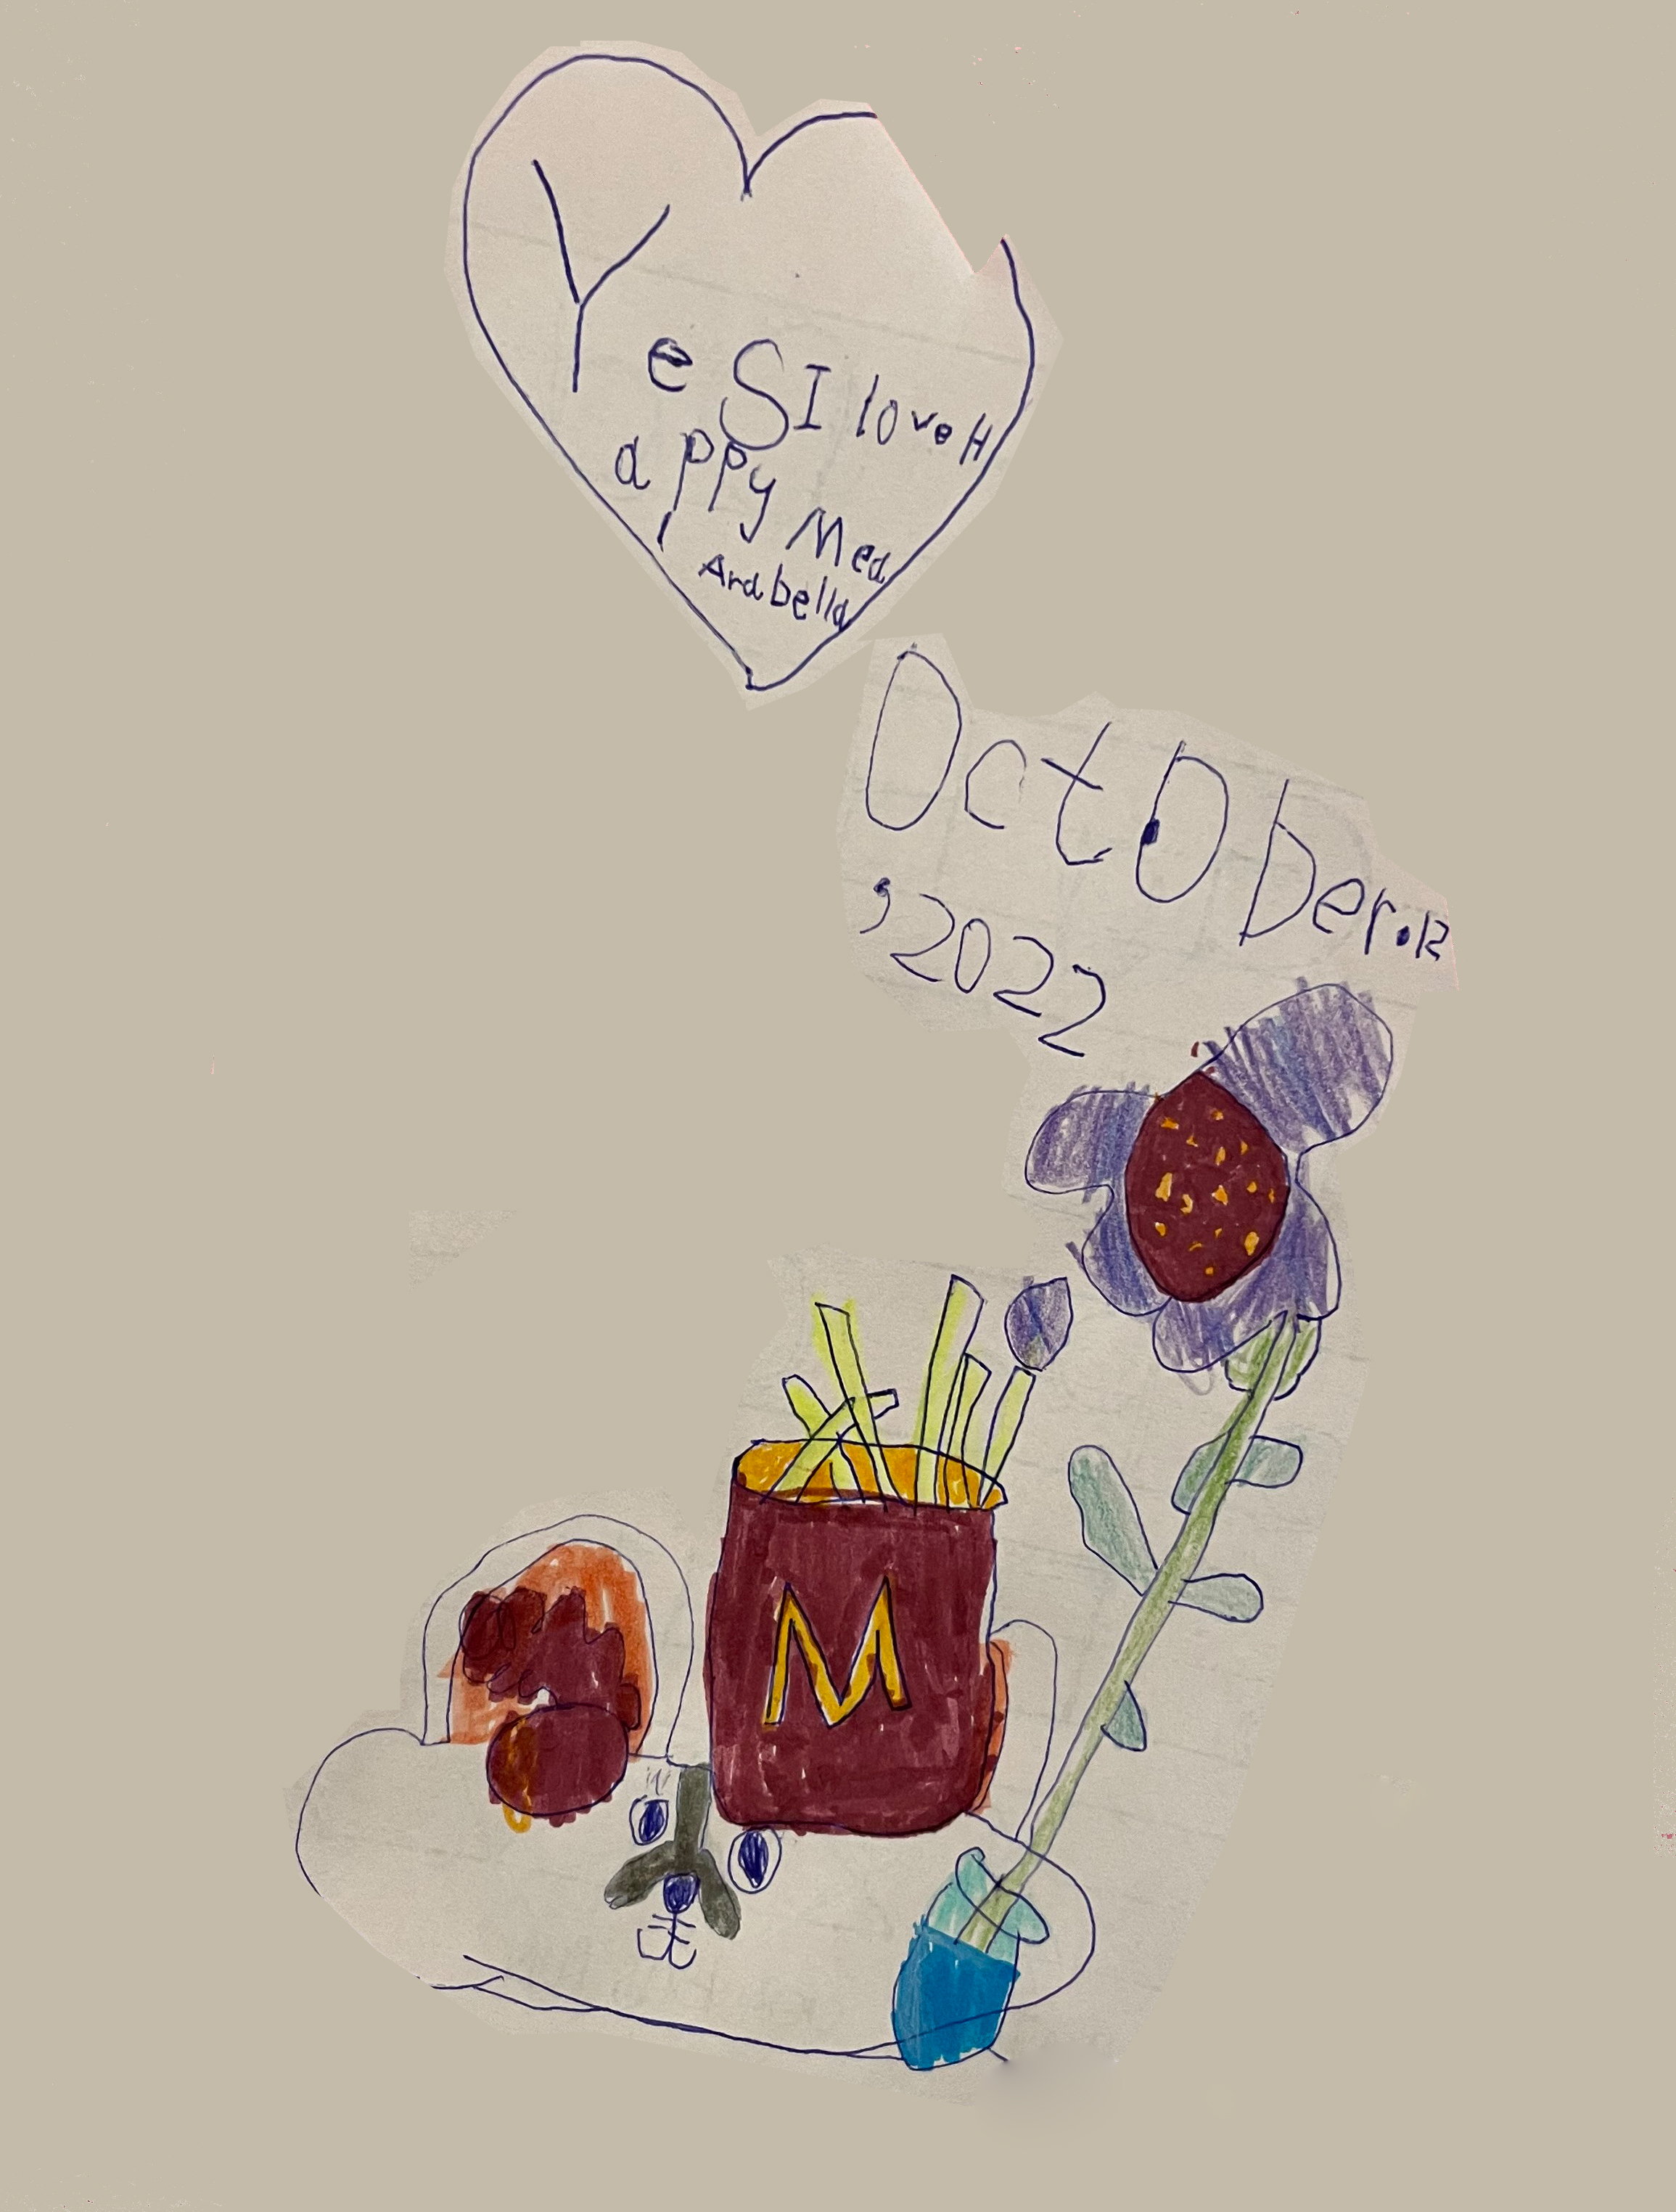 YeS I love H
appy Mea
l
Arabella
OctOber.12
,2022
M